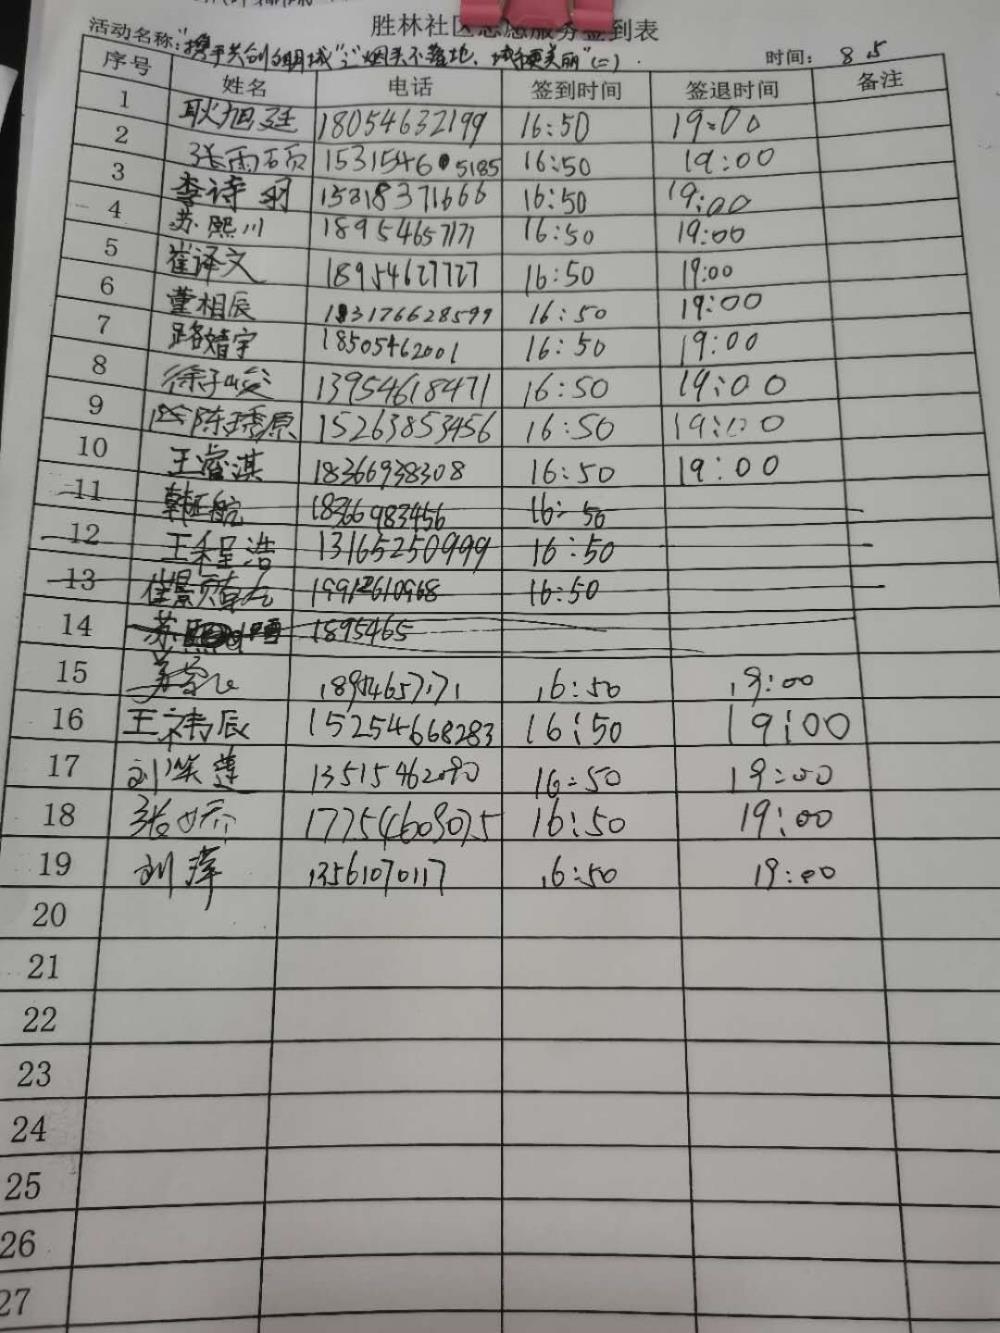 胜林社区志愿服务签到表
活动名称:"携手共创文明城";"烟头不落地,城市更美丽"(二). 时间: 8 5
序号 姓名 电话 签到时间 签退时间 备注
1 耿旭廷 18054632199 16:50 19:00
2 张雨硕 1531546 5185 16:50 19:00
3 李诗羽 15318371666 16:50 19:00
4 苏熙川 18954657171 16:50 19:00
5 崔译文 18954627727 16:50 19:00
6 董相辰 183176628599 16:50 19:00
7 路婧宇 18505462001 16:50 19:00
8 徐子峻 13954618471 16:50 19:00
9 陈琇原 15263853456 16:50 19:00
10 王睿淇 18366938308 16:50 19:00
11 韩航 18366983456 16:50
12 王程浩 13165250999 16:50
13 崔景 19912610968 16:50
14 苏 1895465
15 18954657171 16:50 19:00
16 王祎辰 15254668283 16:50 19:00
17 刘笑莲 13515462090 16:50 19:00
18 张娇 17754609075 16:50 19:00
19 刘萍 13561070117 16:50 19:00
20
21
22
23
24
25
26
27